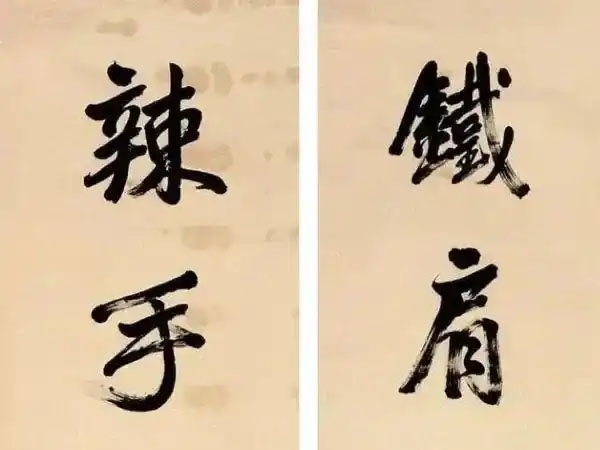 鐵肩
辣手